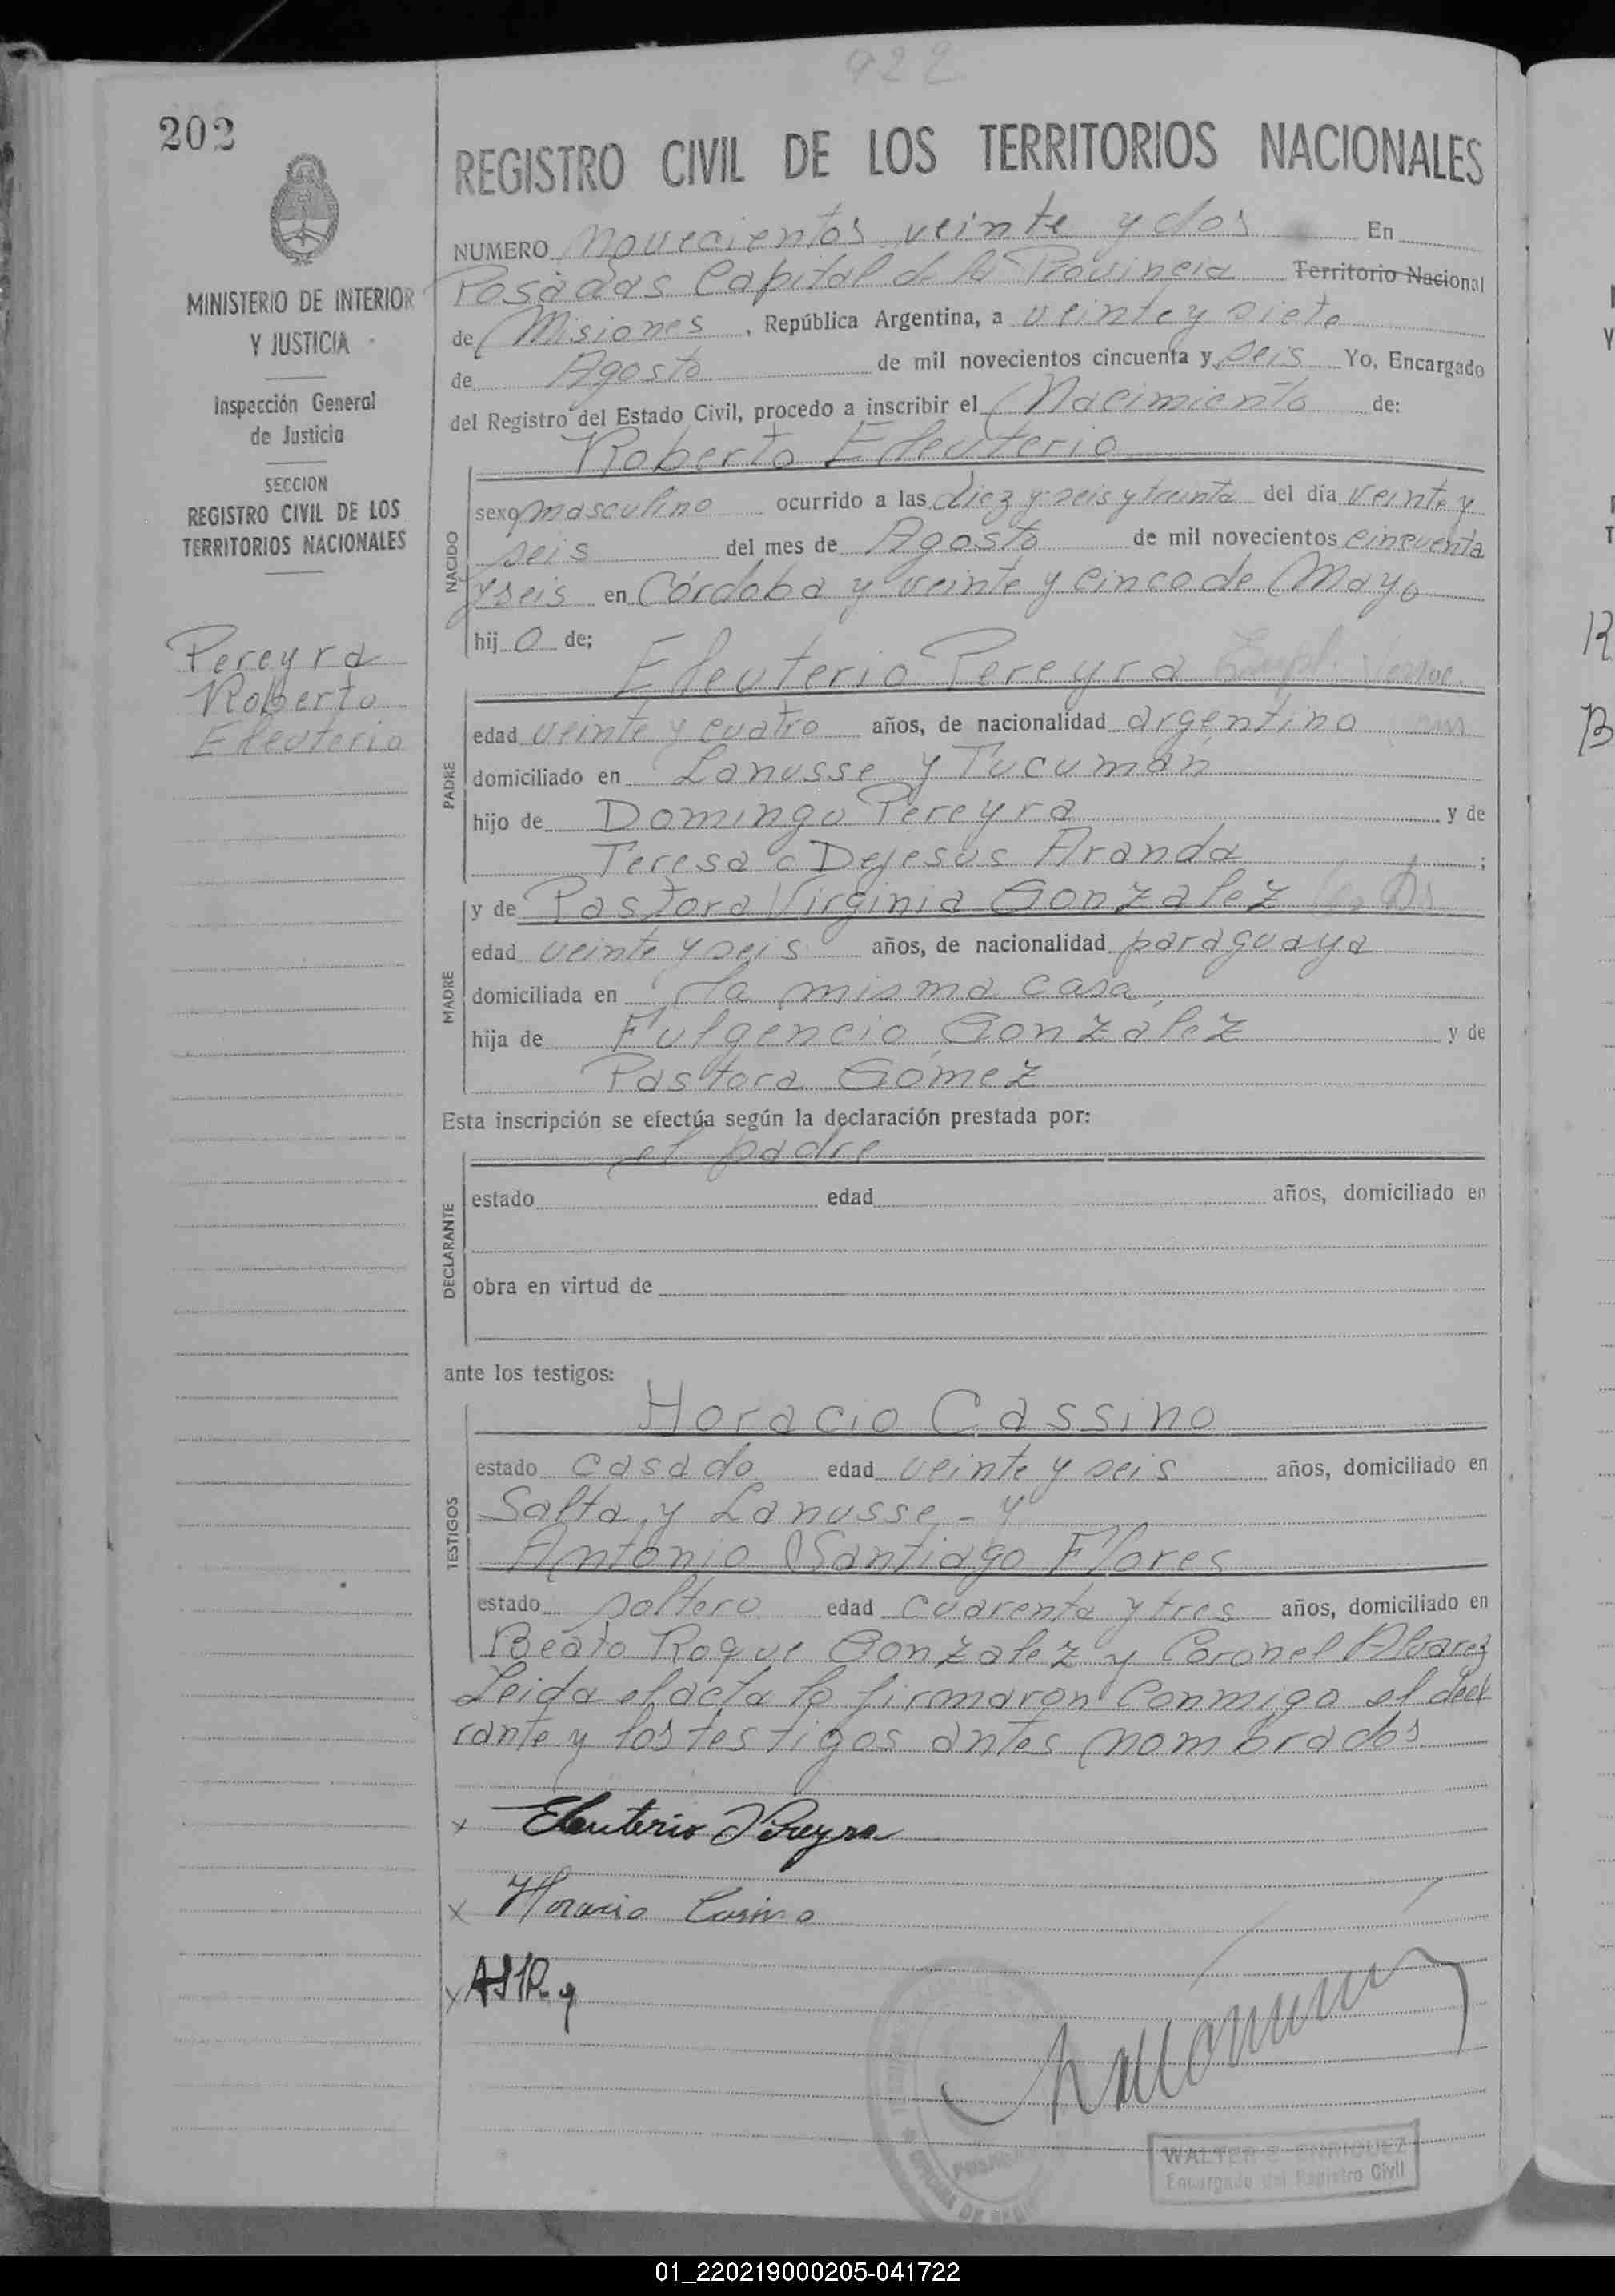 922
202
MINISTERIO DE INTERIOR
Y JUSTICIA
Inspección General
de Justicia
SECCION
REGISTRO CIVIL DE LOS
TERRITORIOS NACIONALES
Pereyra
Roberto
Eleuterio
REGISTRO CIVIL DE LOS TERRITORIOS NACIONALES
NUMERO novecientos veinte y dos En
Posadas Capital de la Provincia Territorio Nacional
de Misiones, República Argentina, a veinte y siete
de Agosto de mil novecientos cincuenta y seis Yo, Encargado
del Registro del Estado Civil, procedo a inscribir el Nacimiento de:
Roberto Eleuterio
NACIDO
sexo masculino ocurrido a las diez y seis y treinta del día veinte y
seis del mes de Agosto de mil novecientos cincuenta
y seis en Córdoba y veinte y cinco de Mayo
hij o de;
Eleuterio Pereyra Empl.
PADRE
edad veinte y cuatro años, de nacionalidad argentino
domiciliado en Lanusse y Tucumán
hijo de Domingo Pereyra y de
Teresa Dejesús Aranda ;
MADRE
y de Pastora Virginia Gonzalez
edad veinte y seis años, de nacionalidad paraguaya
domiciliada en la misma casa,
hija de Fulgencio González y de
Pastora Gómez
Esta inscripción se efectúa según la declaración prestada por:
el padre
DECLARANTE
estado edad años, domiciliado en
obra en virtud de
ante los testigos:
TESTIGOS
Horacio Cassino
estado casado edad veinte y seis años, domiciliado en
Salta y Lanusse - y
Antonio Santiago Flores
estado soltero edad cuarenta y tres años, domiciliado en
Beato Roque Gonzalez y Coronel Alvarez
Leida el acta la firmaron conmigo el decl
rante y los testigos antes nombrados
x Eleuterio Pereyra
x Horacio Casino
x
WALTER E. ENRIQUEZ
Encargado del Registro Civil
01_220219000205-041722